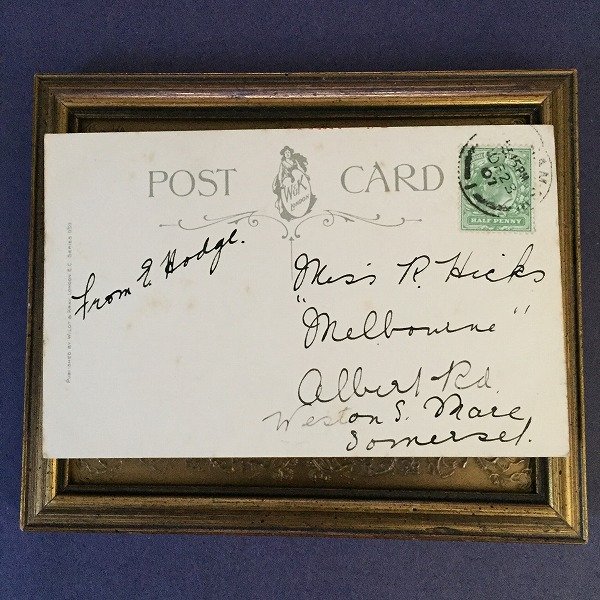 POST CARD
W&K
LONDON
HALF PENNY
from E. Hodge.
Miss R. Hicks
"Melbourne"
Albert Rd.
Weston S. Mare
Somerset.